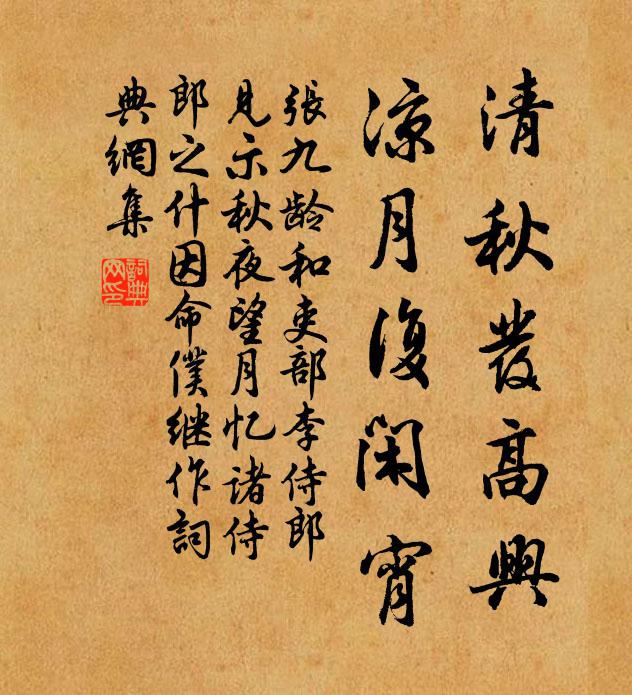 清秋發高興
凉月復閑宵
張九龄和吏部李侍郎
見示秋夜望月忆諸侍
郎之什因命僕継作詞
典網集
詞典
网印